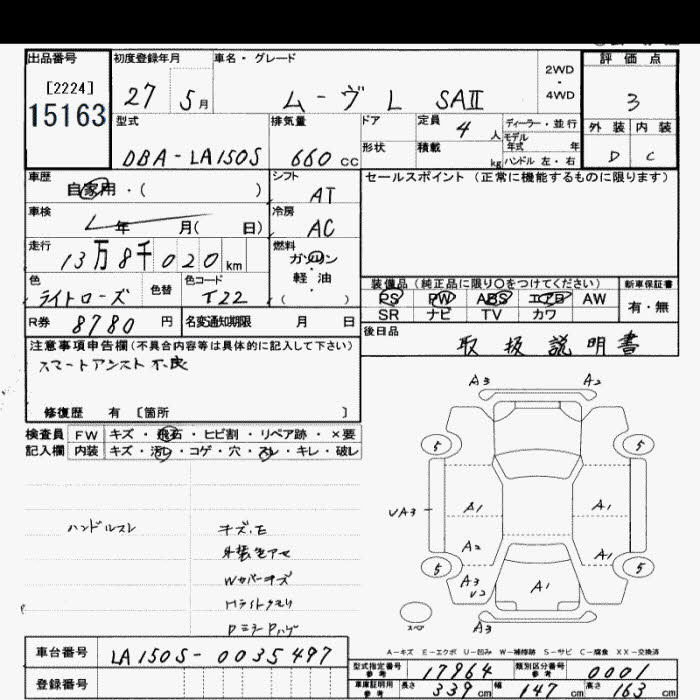 出品番号 初度登録年月 車名・グレード 2WD・4WD 評価点
[2224]
15163
27 5月 ムーヴ L SAⅡ 3
型式 排気量 ドア 定員 4人 ディーラー・並行 外装 内装
モデル年式 年
DBA-LA150S 660cc 形状 積載 kg ハンドル 左・右 D C
車歴 自家用・( ) シフト AT セールスポイント(正常に機能するものに限ります)
車検 年 月( 日) 冷房 AC
走行 13万8千020km 燃料 ガソリン・軽油 ( )
色 ライトローズ 色替 色コード T22
装備品(純正品に限り〇をつけてください) 新車保証書
PS PW ABS エアB AW 有・無
SR ナビ TV カワ
R券 8780円 名変通知期限 月 日
後日品 取扱説明書
注意事項申告欄(不具合内容等は具体的に記入して下さい)
スマートアシスト不良
修復歴 有 〔箇所 〕
検査員 FW キズ・飛石・ヒビ割・リペア跡・×要
記入欄 内装 キズ・汚レ・コゲ・穴・スレ・キレ・破レ
ハンドルスレ
キズ.E
外装色アセ
Wカバーキズ
Hライトクモリ
DミラーハゲA3 A2
5 5
UA3 A1 A1
A2 A1
5 5
A3 A1
U2
スペア
A3
A-キズ E-エクボ U-凹み W-補修跡 S-サビ C-腐食 XX-交換済
車台番号 LA150S-0035497
登録番号
型式指定番号 参考 17964 類別区分番号 参考 0001
車庫証明用 参考 長さ 339cm 幅 147cm 高さ 163cm